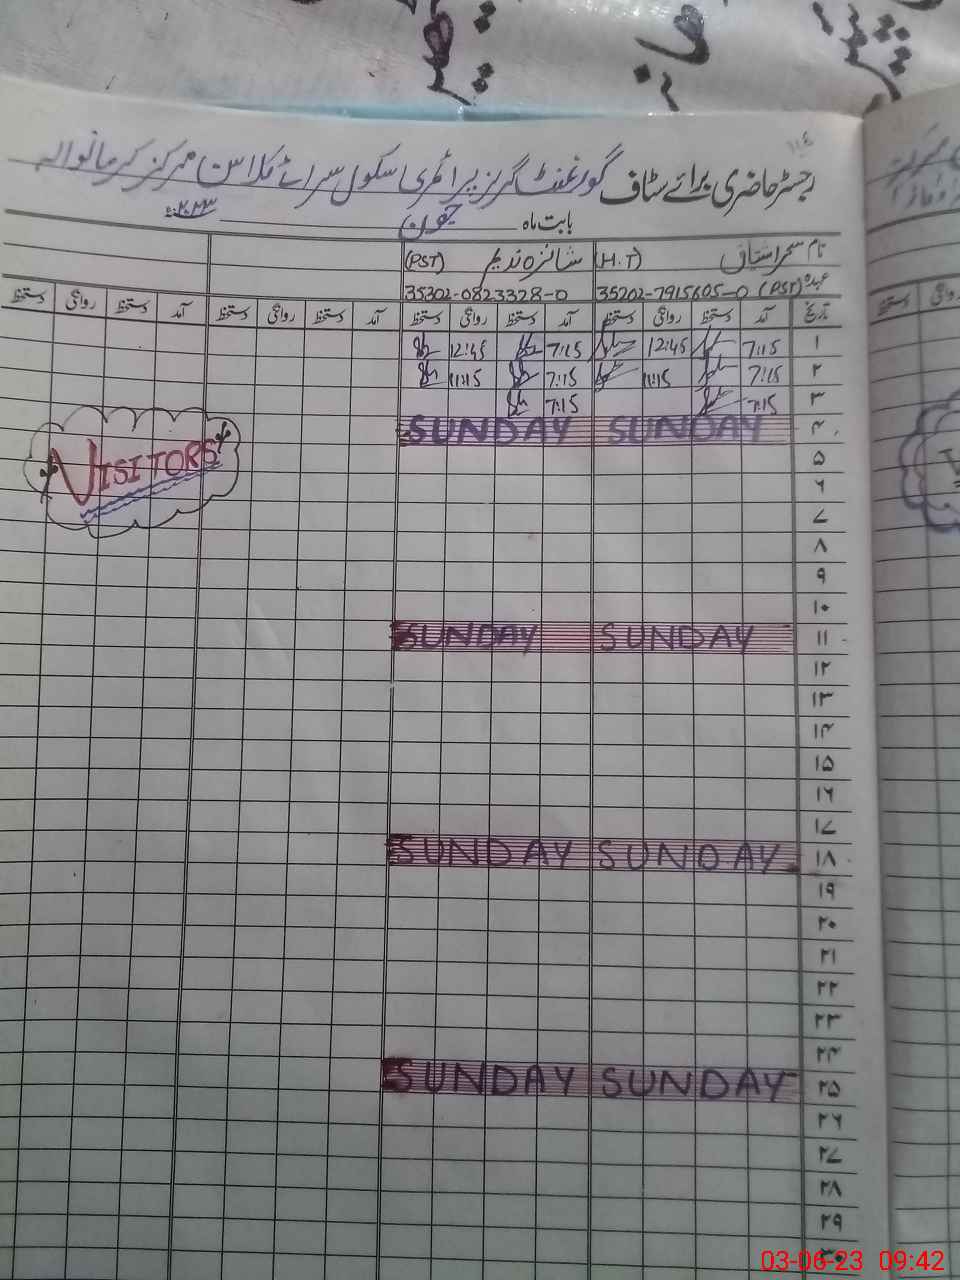 رجسٹر حاضری برائے سٹاف گورنمنٹ گرلز پرائمری سکول سرائے کلاسن مرکز کرمانوالہ
بابت ماہ جون ۲۰۲۳
نام سحر اشتیاق (H.T) شانزہ ندیم (PST)
عہدہ (PST) 35202-7915605-0 35302-0823328-0
تاریخ آمد دستخط روانگی دستخط آمد دستخط روانگی دستخط آمد دستخط روانگی دستخط آمد دستخط روانگی دستخط
۱ 7:15 12:45 7:15 12:45
۲ 7:15 11:15 7:15 11:15
۳ 7:15 7:15
۴ SUNDAY SUNDAY
VISITORS
۵
۶
۷
۸
۹
۱۰
۱۱ SUNDAY SUNDAY
۱۲
۱۳
۱۴
۱۵
۱۶
۱۷
۱۸ SUNDAY SUNDAY
۱۹
۲۰
۲۱
۲۲
۲۳
۲۴
۲۵ SUNDAY SUNDAY
۲۶
۲۷
۲۸
۲۹
۳۰
03-06-23 09:42